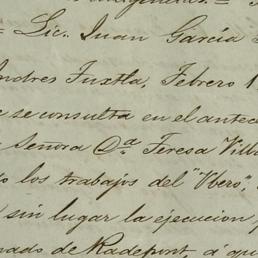 Lic. Juan García
Tuxtla, Febrero 1
se consulta en el antec
Señora Da. Teresa Vill
los trabajos del "Ubero",
sin lugar la ejecucion
nado de Radepont, á qu